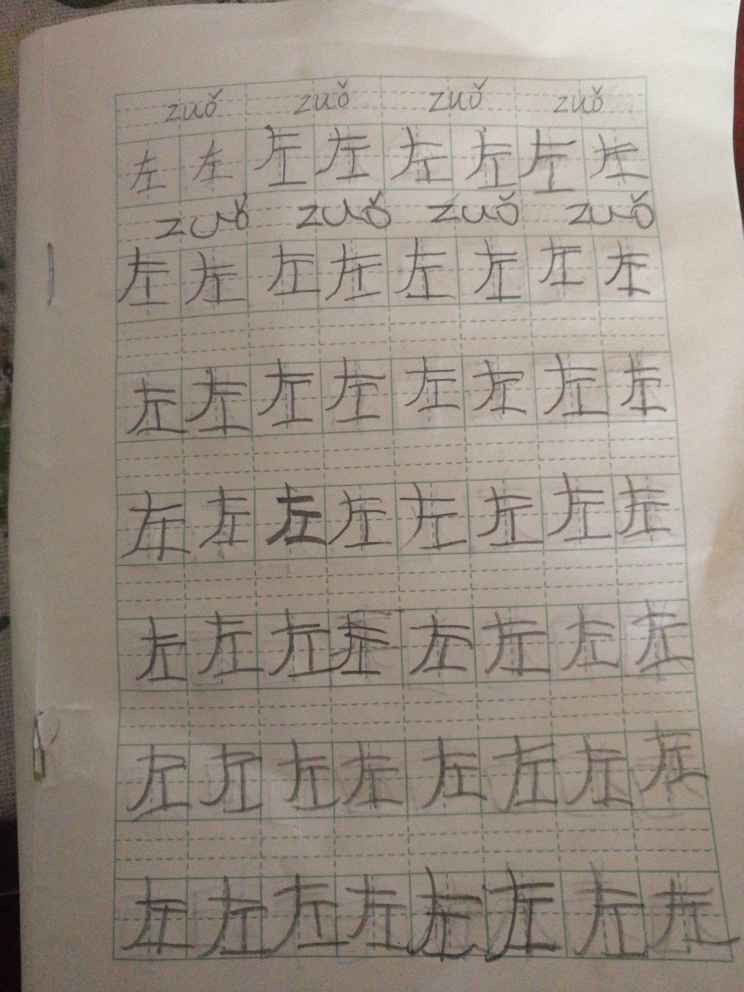 zuǒ zuǒ zuǒ zuǒ
左 左 左 左 左 左 左 左
zuǒ zuǒ zuǒ zuǒ
左 左 左 左 左 左 左 左
左 左 左 左 左 左 左 左
左 左 左 左 左 左 左 左
左 左 左 左 左 左 左 左
左 左 左 左 左 左 左 左
左 左 左 左 左 左 左 左